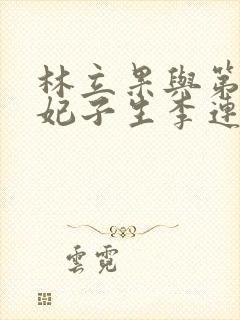 林立果與第
妃子生李連
雲霓